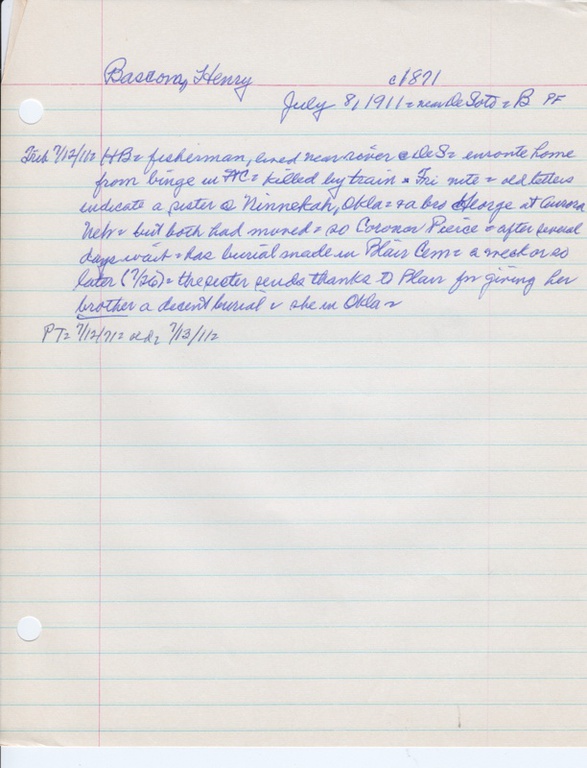 Bascom, Henry c1871
July 8, 1911 = near DeSoto = B PF
Trib 7/12/11= HB = fisherman, lived near river @ DeS = enroute home
from binge in FtC = killed by train = Fri nite = old letters
indicate a sister @ Ninnekah, Okla = + a bro George at Aurora
Neb = but both had moved = so Coroner Pierce = after several
days wait = has burial made in Blair Cem = a week or so
later (7/26) = the sister sends thanks to Blair for giving her
brother a decent burial = she in Okla =
PT= 7/12/11= 7/13/11=